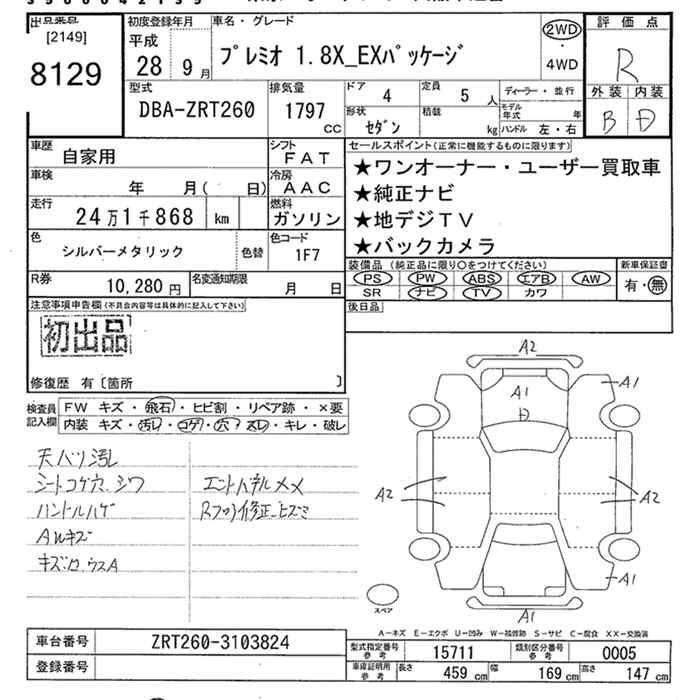 出品票
[2149]
8129
初度登録年月
平成
28 9月
車名・グレード
プレミオ 1.8X_EXパッケージ
2WD
・
4WD
評価点
R
外装 内装
B D
型式
DBA-ZRT260
排気量
1797
CC
ドア
4
定員
5 人
形状
セダン
積載
kg
ディーラー・並行
モデル年式 年
ハンドル 左・右
車歴
自家用
シフト
FAT
車検
年 月( 日)
冷房
AAC
走行
24万1千868 km
燃料
ガソリン
色
シルバーメタリック
色替
色コード
1F7
R券
10,280円
名変通知期限
月 日
セールスポイント(正常に機能するものに限ります)
★ワンオーナー・ユーザー買取車
★純正ナビ
★地デジTV
★バックカメラ
装備品 (純正品に限り○をつけてください)
PS PW ABS エアB AW
SR ナビ TV カワ
新車保証書
有・無
後日品
注意事項申告欄(不具合内容等は具体的に記入して下さい)
初出品
修復歴 有〔箇所 〕
検査員
記入欄
FW キズ・飛石・ヒビ割・リペア跡・×要
内装 キズ・汚レ・コゲ・穴・スレ・キレ・破レ
天バリ汚レ
シートコゲ穴、シワ
ハンドルハゲ
AWキズ
キズ
ウスA
エンドパネルメメ
Rフロア修正、ヒズミ
A2
A1
D
A1
A2
A2
A1
A1
スペア
A−キズ E−エクボ U−凹み W−補修跡 S−サビ C−腐食 XX−交換済
車台番号
ZRT260-3103824
登録番号
型式指定番号
参考
15711
類別区分番号
参考
0005
車庫証明用
参考
長さ
459 cm
幅
169 cm
高さ
147 cm